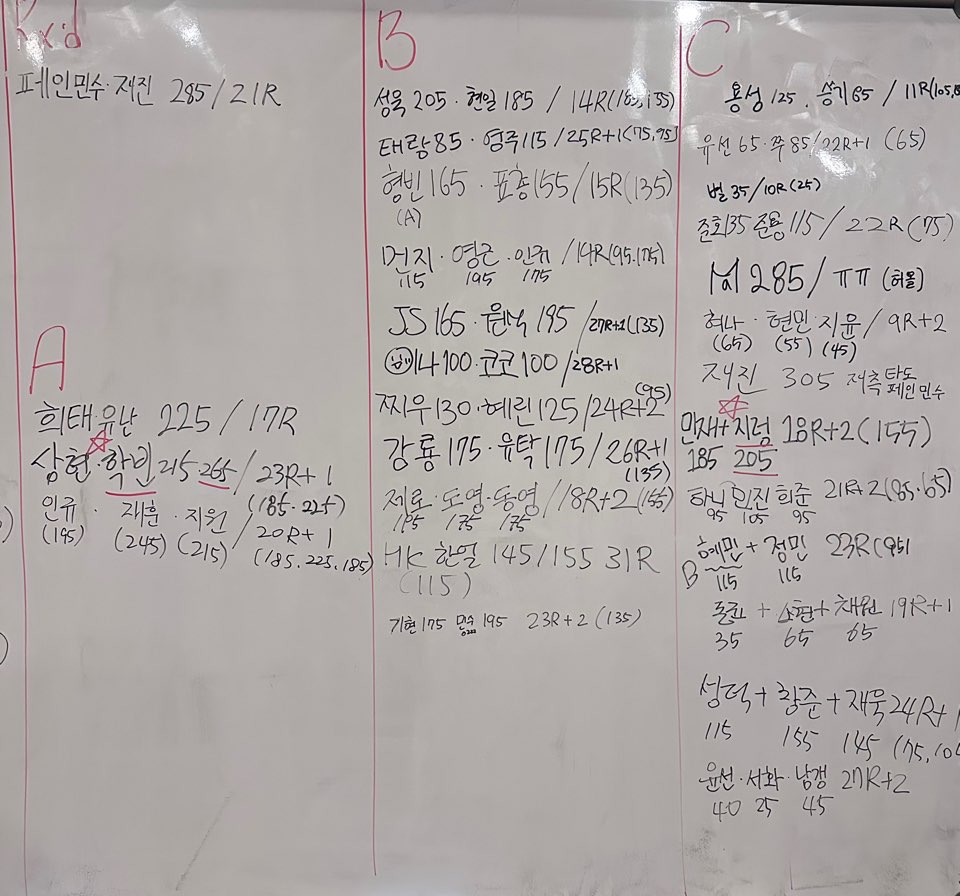 Rx'd
페인민수·재진 285/21R
A
희태 유난 225/17R
상현·학빈 215 265/23R+1
(185·225)
인규·재훈·지원/20R+1
(195) (245) (215) (185.225.185)
B
성욱 205·현일 185/14R(185,155)
태랑 85·영주 115/25R+1(75,95)
형빈 165·표총 155/15R(135)
(A)
먼지·영근·인규/14R(95.175)
115 195 175
JS 165·원석 195/27R+2(135)
나 100·코코 100/28R+1
찌우 130·혜린 125/24R+2
(95)
강룡 175·유탁 175/26R+1
(135)
제로·도영·동영/18R+2(155)
195 175 175
HK 한얼 145/155 31R
(115)
기현 175 민수 195 23R+2(135)
C
용성 125, 승기 65/11R(105,
유선 65·쭈 85/22R+1 (65)
별 35/10R(25)
준희 35 준용 115/22R(75)
M 285/ππ (허물)
혀나·현민·지윤/9R+2
(65) (55) (45)
재진 305 저측 타도
페인민수
민재+지렁 18R+2(155)
185 205
하늬 민진 희준 21R+2(85·65)
95 105 95
혜민+정민 23R(95)
B 115 115
+소현+채원 19R+1
35 65 65
성덕+창준+재욱 24R+1
115 155 145 (75,10
윤선·서화·남갱 27R+2
40 25 45